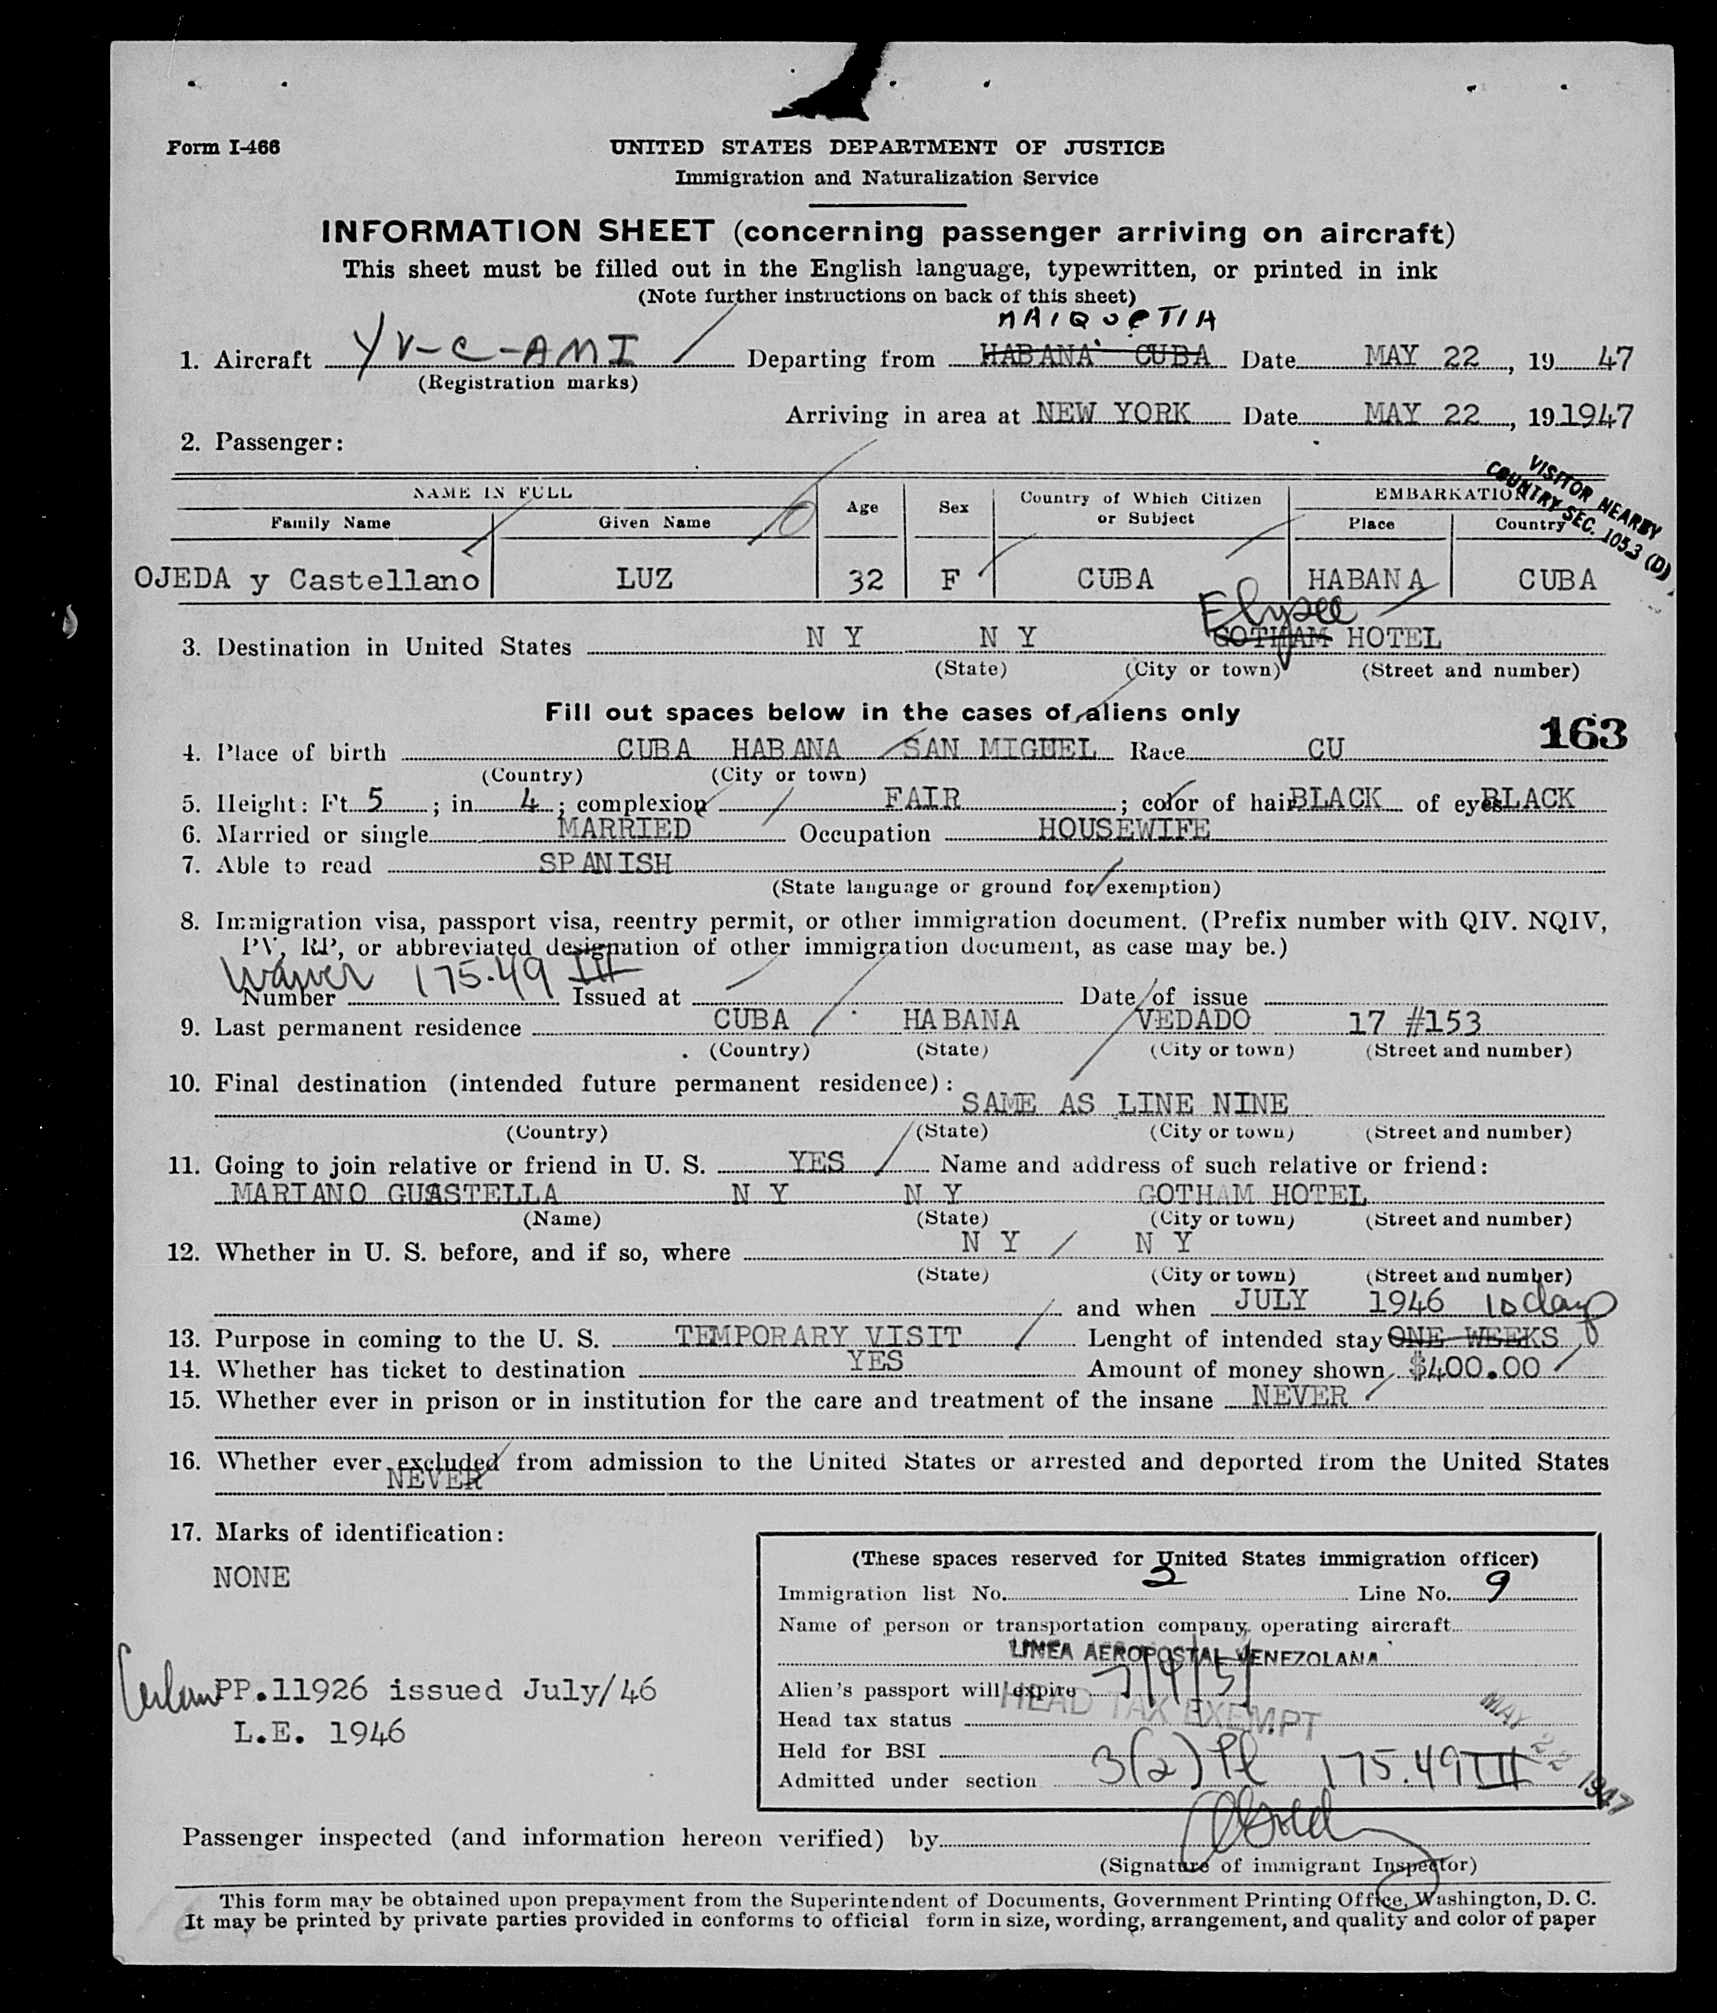 Form I-466
UNITED STATES DEPARTMENT OF JUSTICE
Immigration and Naturalization Service
INFORMATION SHEET (concerning passenger arriving on aircraft)
This sheet must be filled out in the English language, typewritten, or printed in ink
(Note further instructions on back of this sheet)
MAIQUETIA
1. Aircraft YV-C-AMI Departing from HABANA CUBA Date MAY 22, 19 47
(Registration marks)
Arriving in area at NEW YORK Date MAY 22, 19 1947
2. Passenger:
VISITOR NEARBY
COUNTRY SEC. 105.3 (D)
NAME IN FULL Age Sex Country of Which Citizen or Subject EMBARKATION
Family Name Given Name Place Country
OJEDA y Castellano LUZ 32 F CUBA HABANA CUBA
Elysee
3. Destination in United States N Y N Y GOTHAM HOTEL
(State) (City or town) (Street and number)
Fill out spaces below in the cases of aliens only
163
4. Place of birth CUBA HABANA SAN MIGUEL Race CU
(Country) (City or town)
5. Height: Ft 5; in 4; complexion FAIR; color of hair BLACK of eyes BLACK
6. Married or single MARRIED Occupation HOUSEWIFE
7. Able to read SPANISH
(State language or ground for exemption)
8. Immigration visa, passport visa, reentry permit, or other immigration document. (Prefix number with QIV. NQIV,
PV, RP, or abbreviated designation of other immigration document, as case may be.)
Waiver 175.49 III
Number Issued at Date of issue
9. Last permanent residence CUBA HABANA VEDADO 17 #153
(Country) (State) (City or town) (Street and number)
10. Final destination (intended future permanent residence):
SAME AS LINE NINE
(Country) (State) (City or town) (Street and number)
11. Going to join relative or friend in U. S. YES Name and address of such relative or friend:
MARIANO GUASTELLA N Y N Y GOTHAM HOTEL
(Name) (State) (City or town) (Street and number)
12. Whether in U. S. before, and if so, where N Y N Y
(State) (City or town) (Street and number)
and when JULY 1946 10 days
13. Purpose in coming to the U. S. TEMPORARY VISIT Lenght of intended stay ONE WEEKS
14. Whether has ticket to destination YES Amount of money shown $400.00
15. Whether ever in prison or in institution for the care and treatment of the insane NEVER
16. Whether ever excluded from admission to the United States or arrested and deported from the United States
NEVER
17. Marks of identification:
NONE
PP.11926 issued July/46
L.E. 1946
(These spaces reserved for United States immigration officer)
Immigration list No. 3 Line No. 9
Name of person or transportation company operating aircraft
LINEA AEROPOSTAL VENEZOLANA
Alien's passport will expire 7/4/51
Head tax status HEAD TAX EXEMPT
Held for BSI
Admitted under section 3(2) Pl 175.49 III
MAY 22 1947
Passenger inspected (and information hereon verified) by
(Signature of immigrant Inspector)
This form may be obtained upon prepayment from the Superintendent of Documents, Government Printing Office, Washington, D. C.
It may be printed by private parties provided in conforms to official form in size, wording, arrangement, and quality and color of paper